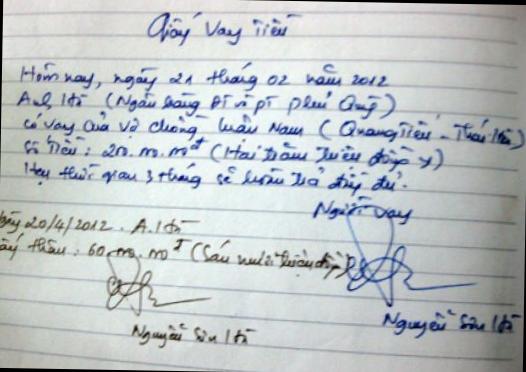 Giấy vay tiền
Hôm nay, ngày 21 tháng 02 năm 2012
Anh Hà (Ngân hàng ĐT và PT Phủ Quỳ)
có vay của vợ chồng Luân Nam (Quang Tiến - Thái Hòa)
số tiền: 200.000.000đ (Hai trăm triệu đồng)
Hẹn thời gian 3 tháng sẽ hoàn trả đầy đủ.
Người vay
Ngày 20/4/2012. A. Hà
lấy thêm: 60.000.000đ (Sáu mươi triệu đồng)
Nguyễn Sơn Hà
Nguyễn Sơn Hà